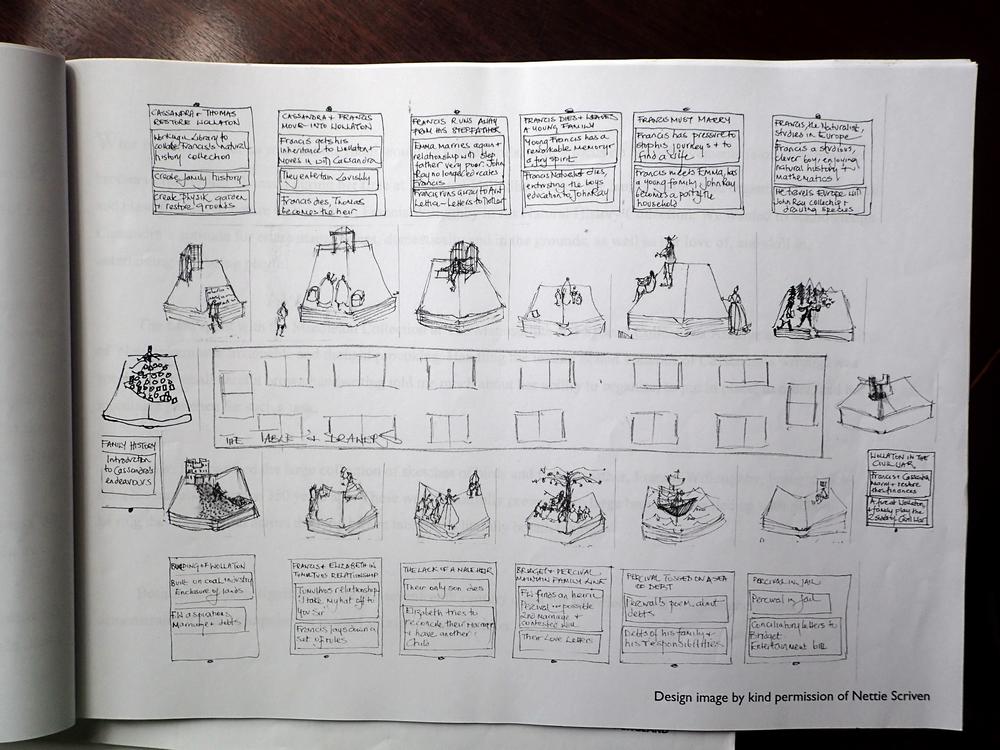 CASSANDRA + THOMAS
RESTORE WOLLATON
Working in Library to
collate Francis's natural
history collection
create family history
create physik garden
+ restore grounds
CASSANDRA + FRANCIS
MOVE INTO WOLLATON
Francis gets his
inheritance to Wollaton,
moves in with Cassandra
They entertain Lavishly
Francis dies, Thomas
becomes the heir
FRANCIS RUNS AWAY
FROM HIS STEPFATHER
Emma Marries again +
relationship with step
father very poor. John
Ray no longer educates
Francis
Francis runs away to Aunt
Lettia - Letters to
FRANCIS DIES + LEAVES
A YOUNG FAMILY
Young Francis has a
remarkable memory +
a fiery spirit
Francis Naturalist dies,
entrusting the boys
education to John Ray
FRANCIS MUST MARRY
Francis has pressure to
stop his journeys + to
find a wife
Francis meets Emma, has
a young family. John Ray
becomes a part of the
household
FRANCIS, the Naturalist,
studies in Europe
Francis a studious,
clever boy enjoying
natural history +
mathematics
He travels Europe with
John Ray collecting +
drawing species
THE TABLE + DRAWERS
FAMILY HISTORY
Introduction
to Cassandra's
endeavours
WOLLATON IN THE
CIVIL WAR
Francis + Cassandra
Marry + restore
the finances
A fire at Wollaton,
+ family play the
2 sides in Civil War
BUILDING OF WOLLATON
Built on coal industry
Enclosure of lands
FW aspirations
Marriage + debts
FRANCIS + ELIZABETH IN
TUMULTUOUS RELATIONSHIP
Tumultuous relationship
'I take my hat off to
you Sir'
Francis lays down a
set of rules
THE LACK OF A MALE HEIR
Their only son dies
Elizabeth tries to
reconcile their marriage
+ have another
Child
BRIDGET + PERCIVAL
MAINTAIN FAMILY LINE
FW finds an heir in
Percival - possible
2nd Marriage +
contested will
Their Love Letters
PERCIVAL TOSSED ON A SEA
OF DEBT
Percival's poem about
debts
Debts of his family +
his responsibilities
PERCIVAL IN JAIL
Percival in Jail
Conciliatory letters to
Bridget
Entertainment bill
Design image by kind permission of Nettie Scriven